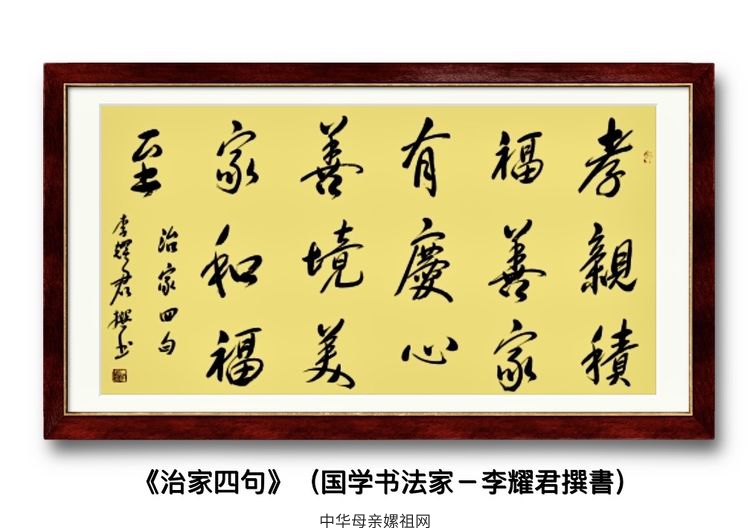 孝親積
福善家
有慶心
善境美
家和福
至
治家四句
李耀君撰书
《治家四句》（国学书法家－李耀君撰書）
中华母亲嫘祖网